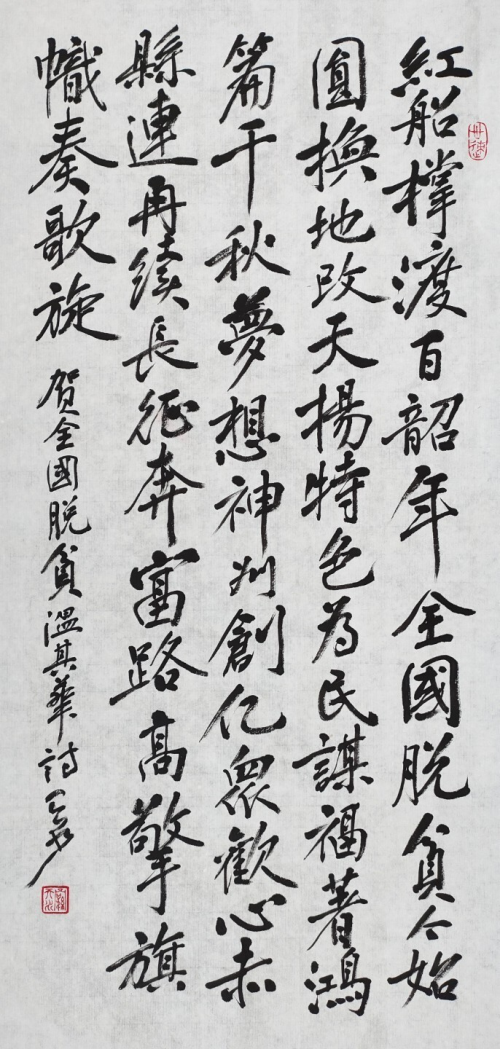 紅船撑渡百韶年全國脱貧今始
圓換地改天揚特色為民謀福著鴻
篇千秋夢想神州創億衆歡心赤
縣連再續長征奔富路高擎旗
幟奏歌旋
贺全國脱貧溫其華詩